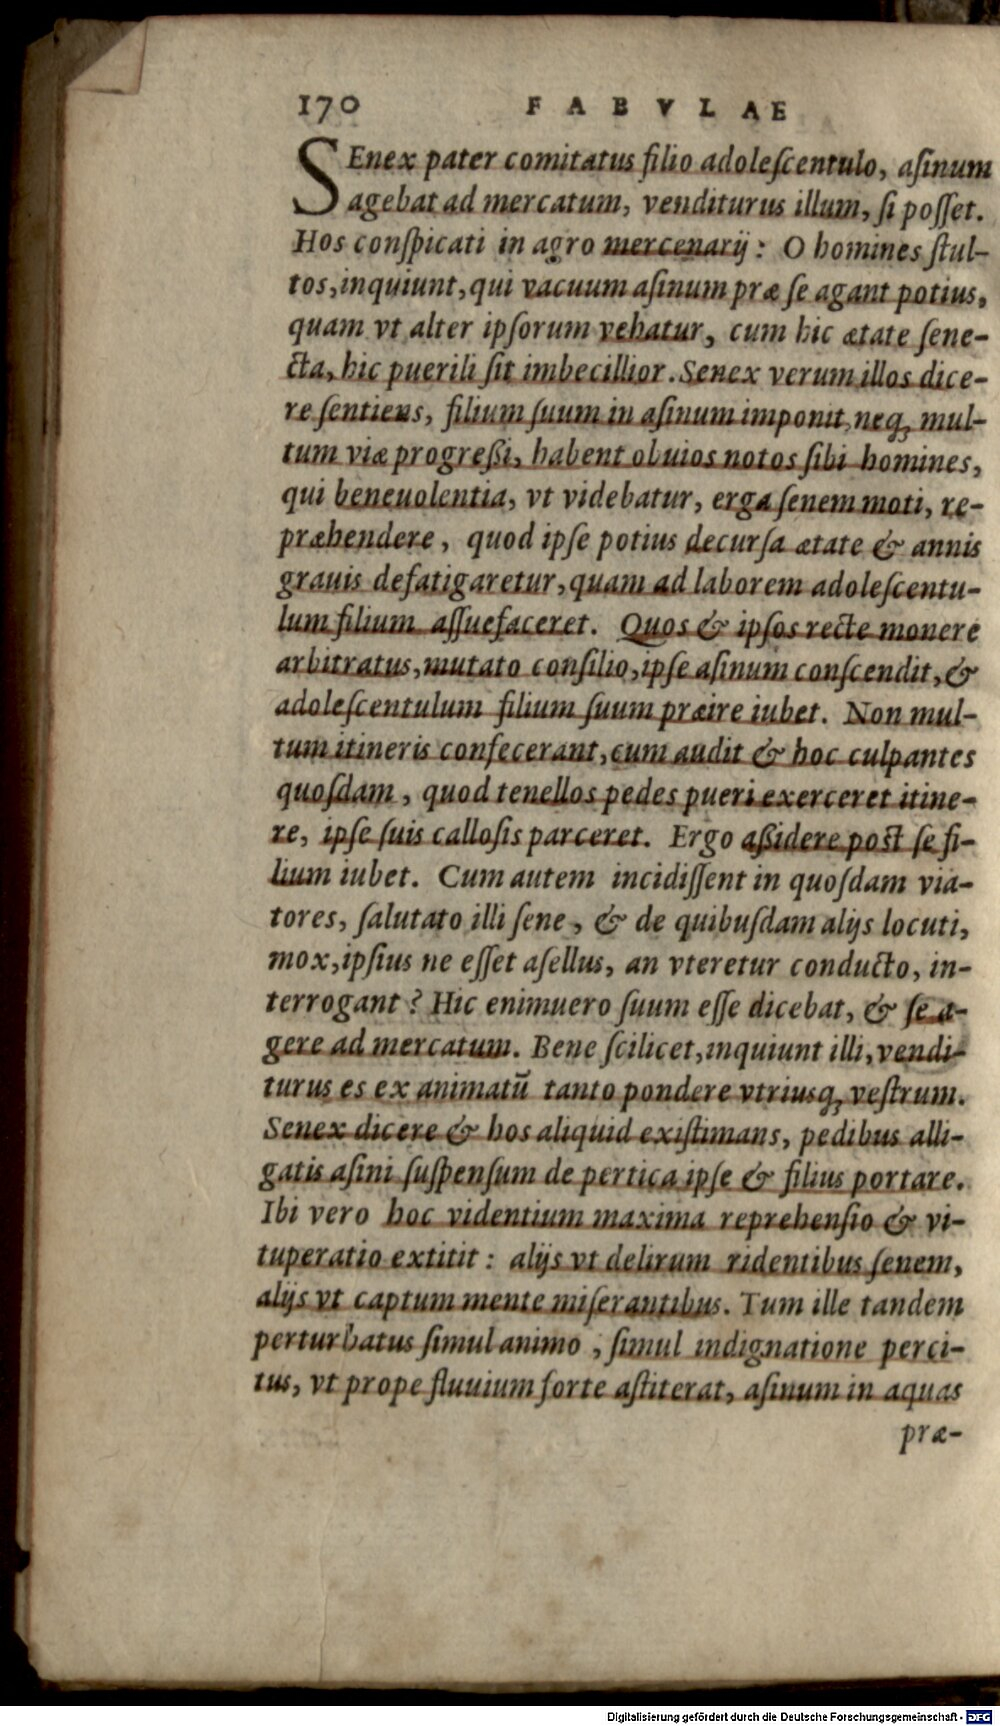 170 FABVLAE
SEnex pater comitatus filio adoleſcentulo, aſinum
agebat ad mercatum, venditurus illum, ſi poſſet.
Hos conſpicati in agro mercenarij: O homines ſtul-
tos, inquiunt, qui vacuum aſinum præ ſe agant potius,
quam vt alter ipſorum vehatur, cum hic ætate ſene-
cta, hic puerili ſit imbecillior. Senex verum illos dice-
re ſentiens, filium ſuum in aſinum imponit, neq; mul-
tum viæ progreßi, habent obuios notos ſibi homines,
qui beneuolentia, vt videbatur, erga ſenem moti, re-
præhendere, quod ipſe potius decurſa ætate & annis
grauis defatigaretur, quam ad laborem adoleſcentu-
lum filium aſſuefaceret. Quos & ipſos recte monere
arbitratus, mutato conſilio, ipſe aſinum conſcendit, &
adoleſcentulum filium ſuum præire iubet. Non mul-
tum itineris confecerant, cum audit & hoc culpantes
quoſdam, quod tenellos pedes pueri exerceret itine-
re, ipſe ſuis calloſis parceret. Ergo aßidere poſt ſe fi-
lium iubet. Cum autem incidiſſent in quoſdam via-
tores, ſalutato illi ſene, & de quibuſdam alijs locuti,
mox, ipſius ne eſſet aſellus, an vteretur conducto, in-
terrogant? Hic enimuero ſuum eſſe dicebat, & ſe a-
gere ad mercatum. Bene ſcilicet, inquiunt illi, vendi-
turus es ex animatū tanto pondere vtriusq; veſtrum.
Senex dicere & hos aliquid exiſtimans, pedibus alli-
gatis aſini ſuſpenſum de pertica ipſe & filius portare.
Ibi vero hoc videntium maxima reprehenſio & vi-
tuperatio extitit: alijs vt delirum ridentibus ſenem,
alijs vt captum mente miſerantibus. Tum ille tandem
perturbatus ſimul animo, ſimul indignatione perci-
tus, vt prope fluuium forte aſtiterat, aſinum in aquas
præ-
Digitalisierung gefördert durch die Deutsche Forschungsgemeinschaft - DFG